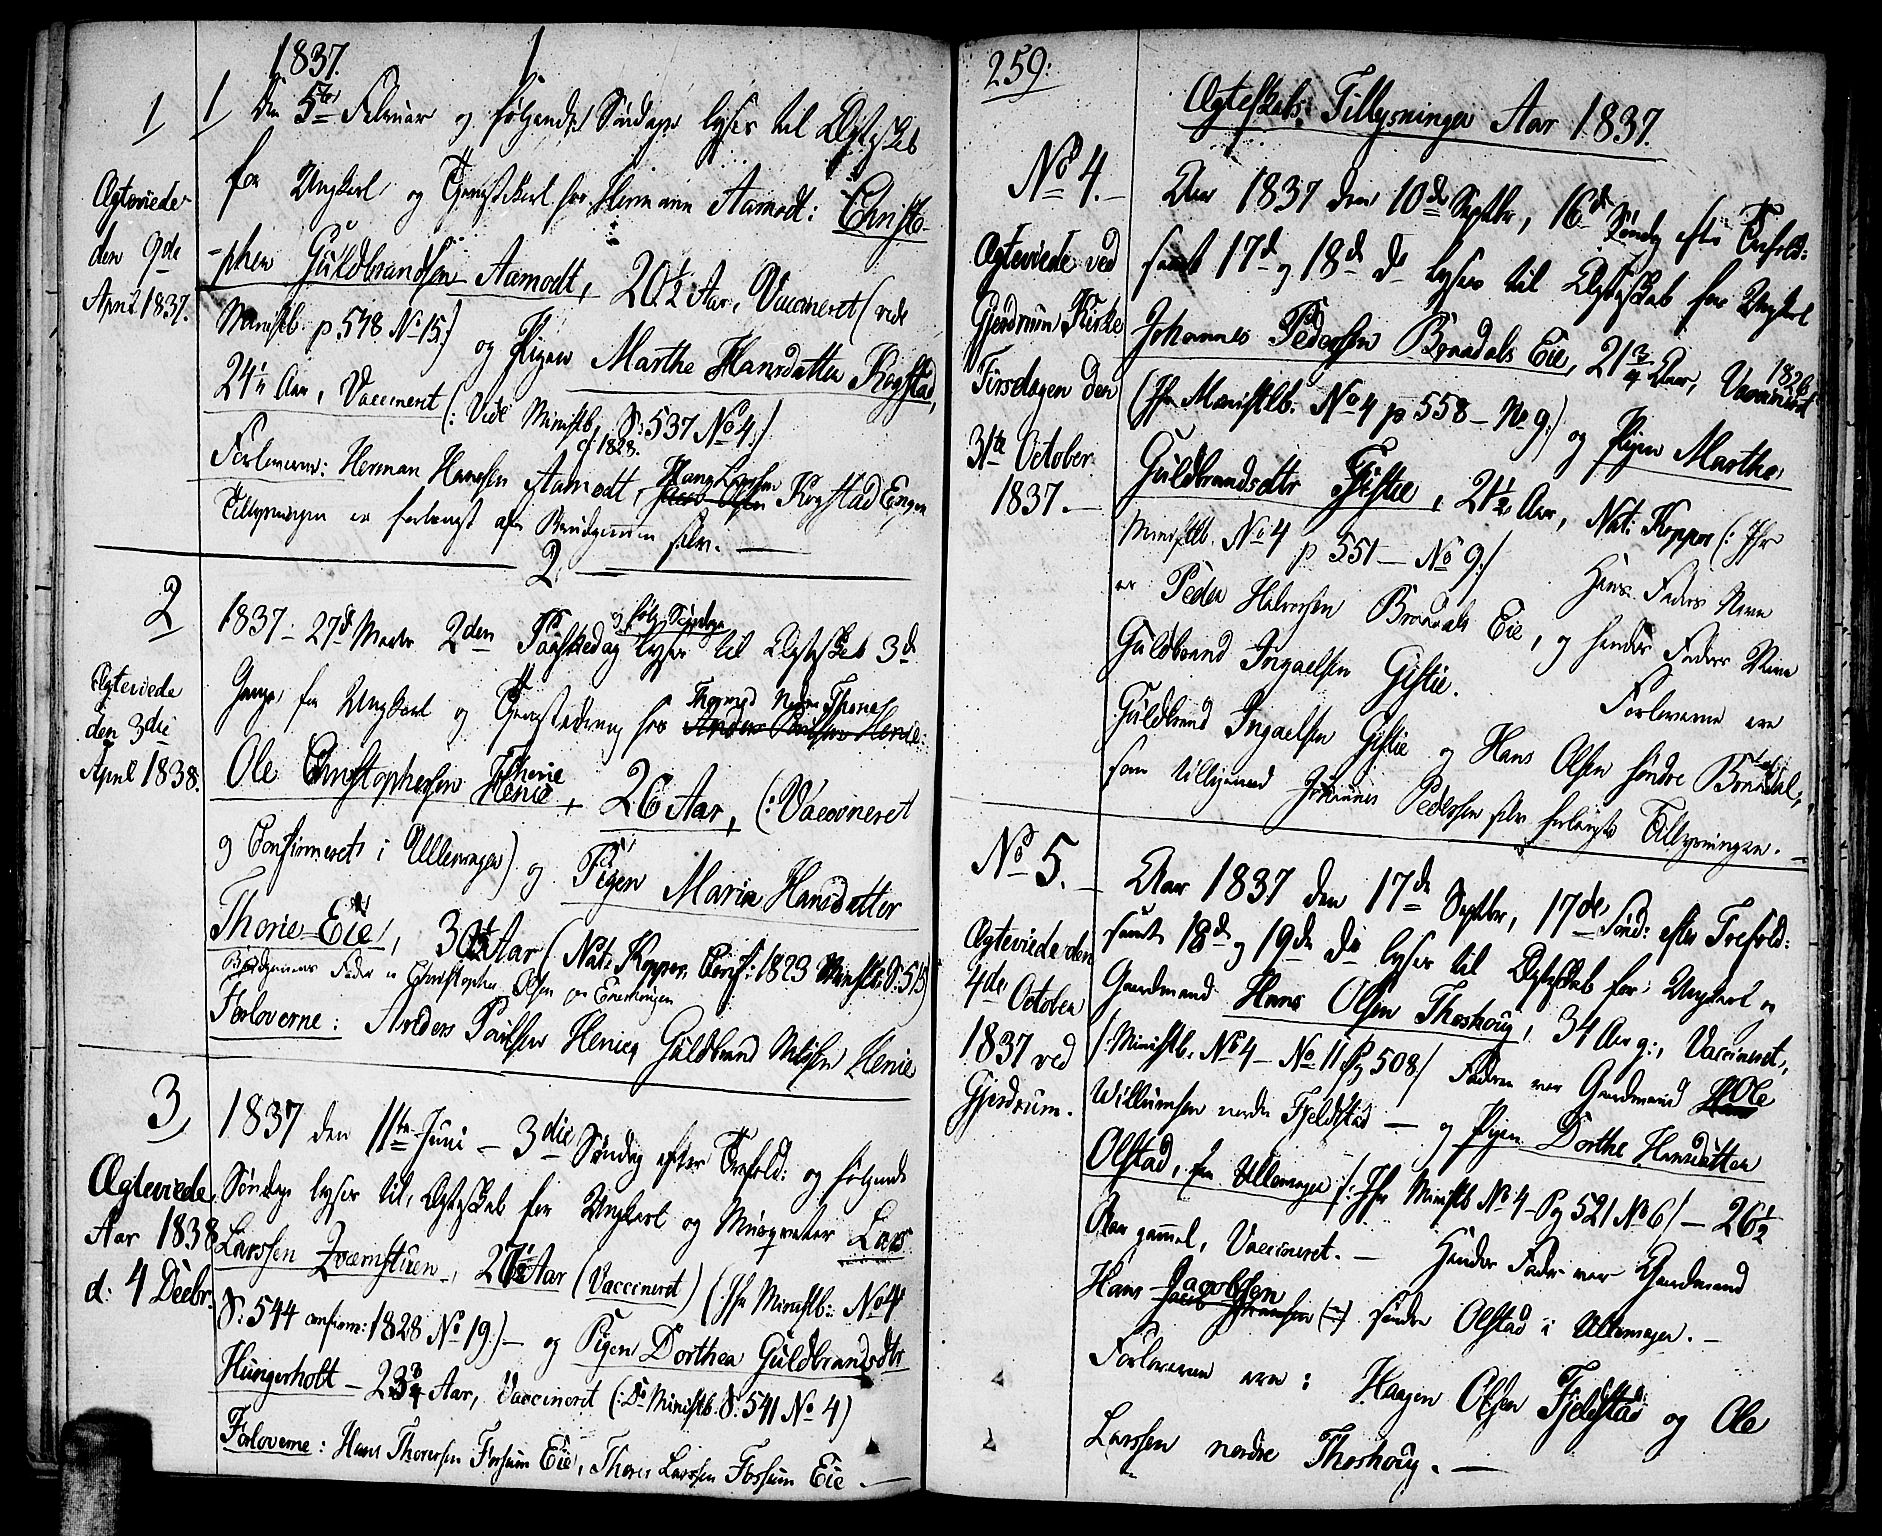 1837.
1
1
1 Den 5te Februar og følgende Søndage lyses til Ægteskab
for Ungkarl og Tjenestekarl hos Herman Aamodt: Christo-
Ægteviede
den 9de
April 1837.
-phen Guldbrandsen Aamodt, 20½ Aar, Vaccineret (vide
Ministb. p. 548 No 15.) og Pigen Marthe Hansdatter Kogstad,
24½ Aar, Vaccineret (: Vide Ministb. S: 537 No 4.)
af 1828.
Forloverne: Herman Hansen Aamodt, Hans Larssen Kogstad Engen
Tillysningen er forlangt af Brudgommen selv. —
2.
2
1837 - 27d Marts 2den Paaskedag og følg. Søndage lyses til Ægteskab 3de
Gange for Ungkarl og Tjenestedreng hos Nedre Thorie
Ægteviede
den 3die
April 1838.
Ole Christophersen Thorie, 26 Aar, (: Vaccineret
og Confirmeret i Ullensager) og Pigen Maria Hansdatter
Thorie Eie, 30½ Aar (Nat: Kopper. Conf: 1823 Ministb. S: 515)
Brudgommens Fader er Christopher Olsen
Forloverne: Anders Poulsen Henie, Guldbrand Nilsen Henie
3,
1837 den 11te Juni - 3die Søndag efter Trefold: og følgende
Ægteviede
Aar 1838
d: 4 Decbr.
Søndage lyses til Ægteskab for Ungkarl og Musqueteer Lars
Larssen Qvæmstuen, 27½ Aar (Vaccineret) (Jfr Ministb: No 4
S: 544 confirm: 1828 No 19.) — og Pigen Dorthea Guldbrandsdtr
Hungerholt - 23¾ Aar, Vaccineret (: Do Ministb. S: 541 No 4)
Forloverne: Hans Thoresen Forsum Eie, Thore Larssen Forsum Eie —
259.
Ægteskabs: Tillysninger Aar 1837.
No 4.
Aar 1837 den 10de Septbr, 16d Søndg efter Trefold:
samt 17d og 18d do lyses til Ægteskab for Ungkarl
Ægteviede ved
Gjerdrum Kirke
Tirsdagen den
31te October
1837. —
Johannes Pedersen Braadals Eie, 21¾ Aar, Vaccineret
1826
(Jfr Ministb. No 4 p 558 - No 9:) og Pigen Marthe
Guldbrandsdtr Gistie, 21½ Aar, Nat: Kopper (: Jfr
Ministb. No 4 p 551 - No 9:/ Hans Faders Navn
er Peder Halvorsen Braadals Eie, og hendes Faders Navn
Guldbrand Ingaelsen Gistie. Forloverne ere
Guldbrand Ingaelsen Gistie og Hans Olsen søndre Braadal,
som tilligemed Johannes Pedersen selv forlangte Tillysningen. —
No 5. —
Aar 1837 den 17de Septbr, 17de Sønd: efter Trefold:
samt 18de og 19de do lyses til Ægteskab for Ungkarl og
Ægteviede den
4de October
1837 ved
Gjerdrum.
Gaardmand Hans Olsen Thoshoug, 34 Aar g:, Vaccineret,
/: Ministb. No 4 - No 11 Pg 508/ Faderen var Gaardmand Ole
Willumsen nordre Fjeldstad — og Pigen Dorthe Hansdatter
Olstad, fra Ullensager /: Jfr Ministb No 4 - Pg 521 No 6/ — 26½
Aar gammel, Vaccineret. — Hendes Fader var Gaardmand
Hans Jacobsen søndre Olstad i Ullensager. —
Forloverne ere: Haagen Olsen Fjeldstad og Ole
Larssen nordre Thoshoug. —